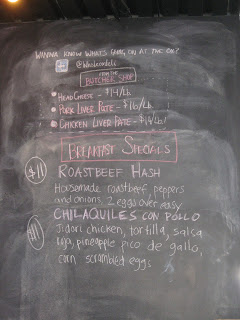 WANNA KNOW WHAT'S GOING ON AT THE OK?
FROM THE
BUTCHER SHOP
• HEAD CHEESE - $14/Lb.
• PORK LIVER PATE - $16/Lb.
• CHICKEN LIVER PATE - $14/Lb.
BREAKFAST SPECIALS
$11
ROASTBEEF HASH
Housemade roastbeef, peppers
and onions, 2 eggs over easy
CHILAQUILES CON POLLO
Jidori chicken, tortilla, salsa
roja, pineapple pico de gallo,
corn scrambled eggs